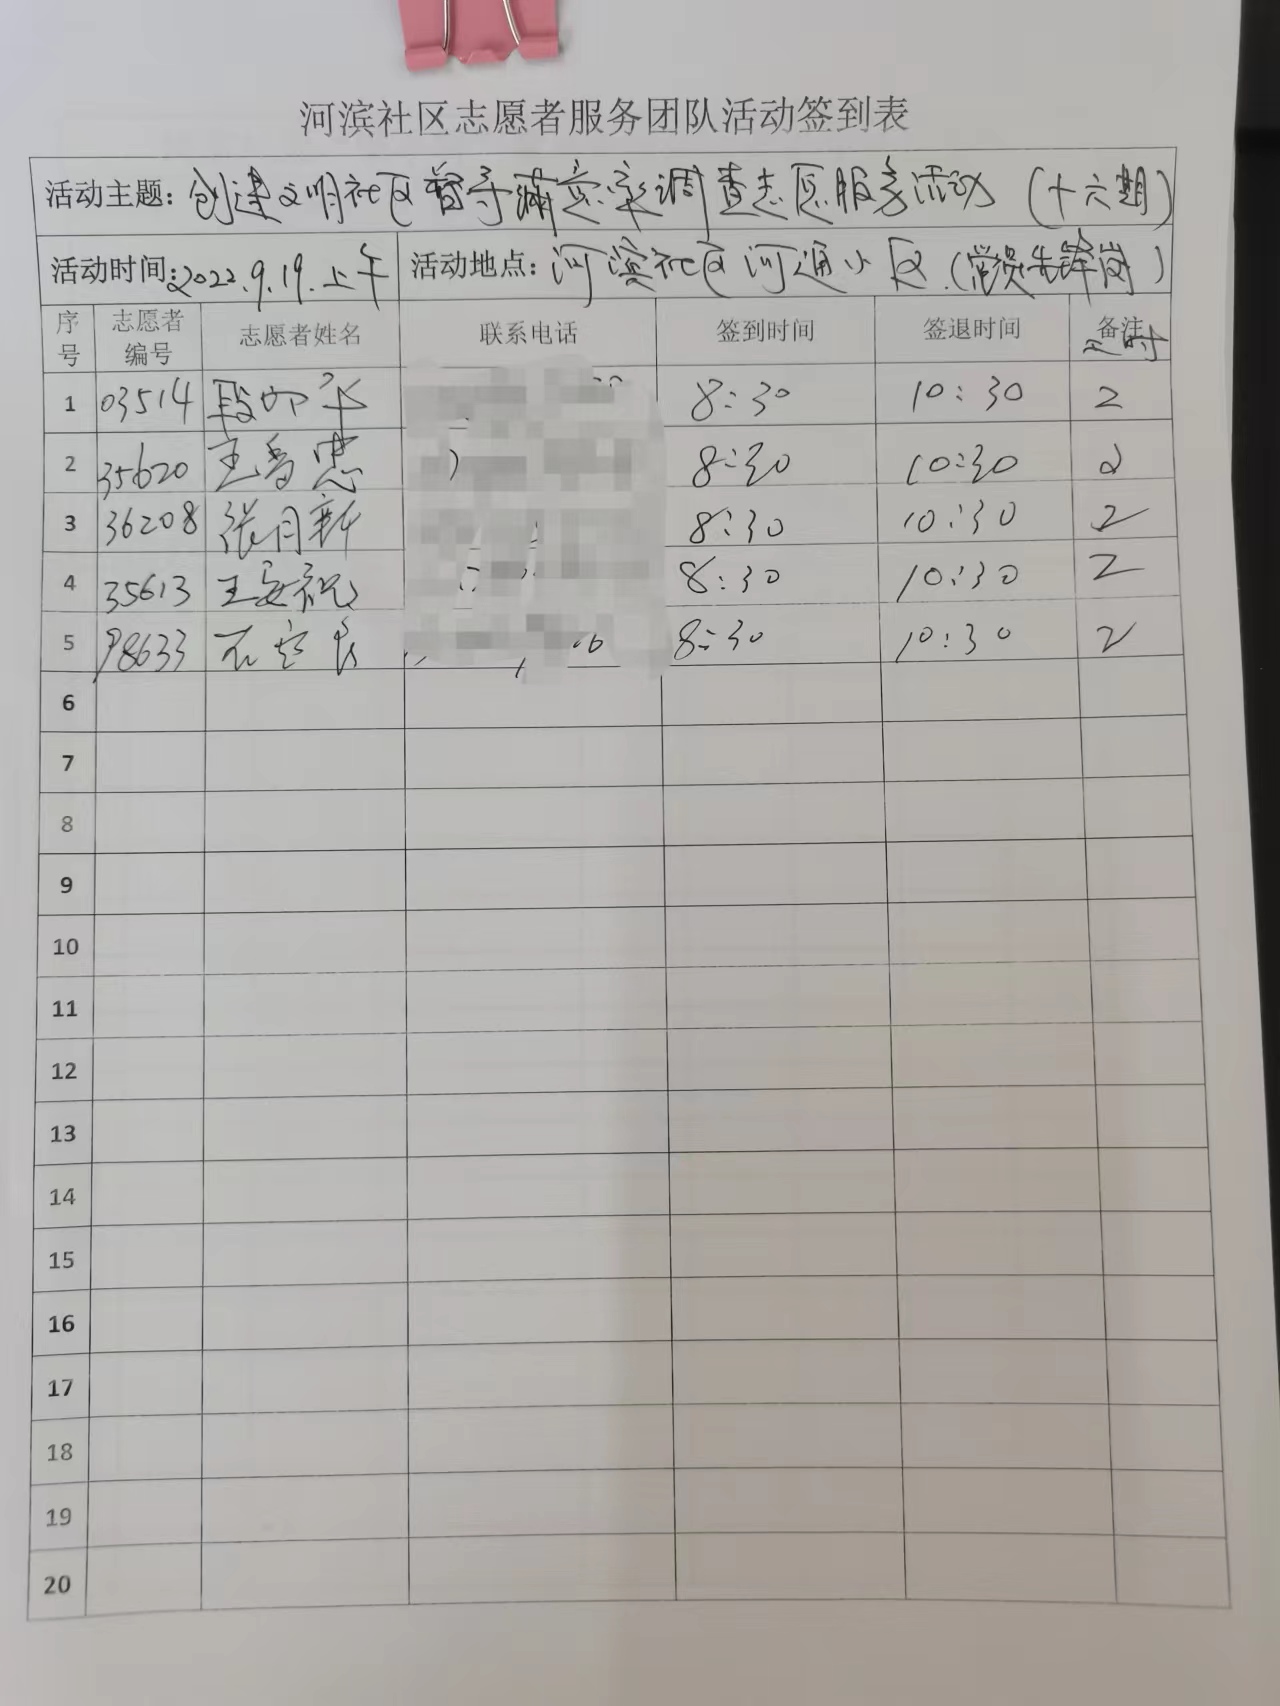 河滨社区志愿者服务团队活动签到表
活动主题:创建文明社区督导满意率调查志愿服务活动(十六期)
活动时间:2022.9.19.上午 活动地点:河滨社区河通小区(党员先锋岗)
序号 志愿者编号 志愿者姓名 联系电话 签到时间 签退时间 备注 工时
1 03514 段 平 8:30 10:30 2
2 35620 王 忠 8:30 10:30 2
3 36208 张月新 8:30 10:30 2
4 35613 王安祝 8:30 10:30 2
5 98633 石 良 8:30 10:30 2
6
7
8
9
10
11
12
13
14
15
16
17
18
19
20